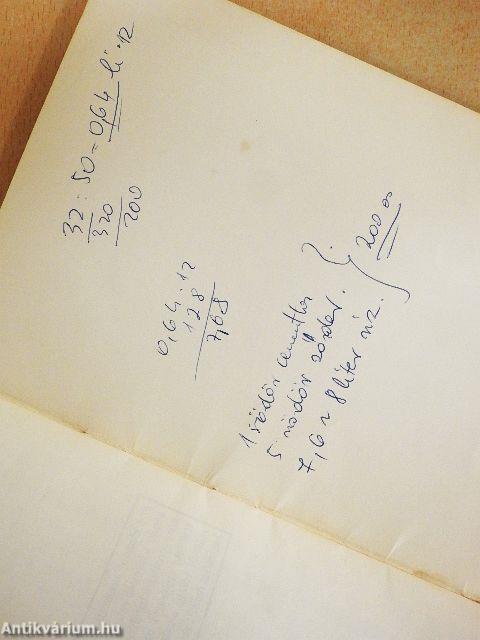 32 : 50 = 0,64 li · 12
320
200
0,64 · 12
128
7,68
1 vödör cementhez
5 vödör sóder.
7,6 ~ 8 liter víz.
} 200 00
Antikvárium.hu